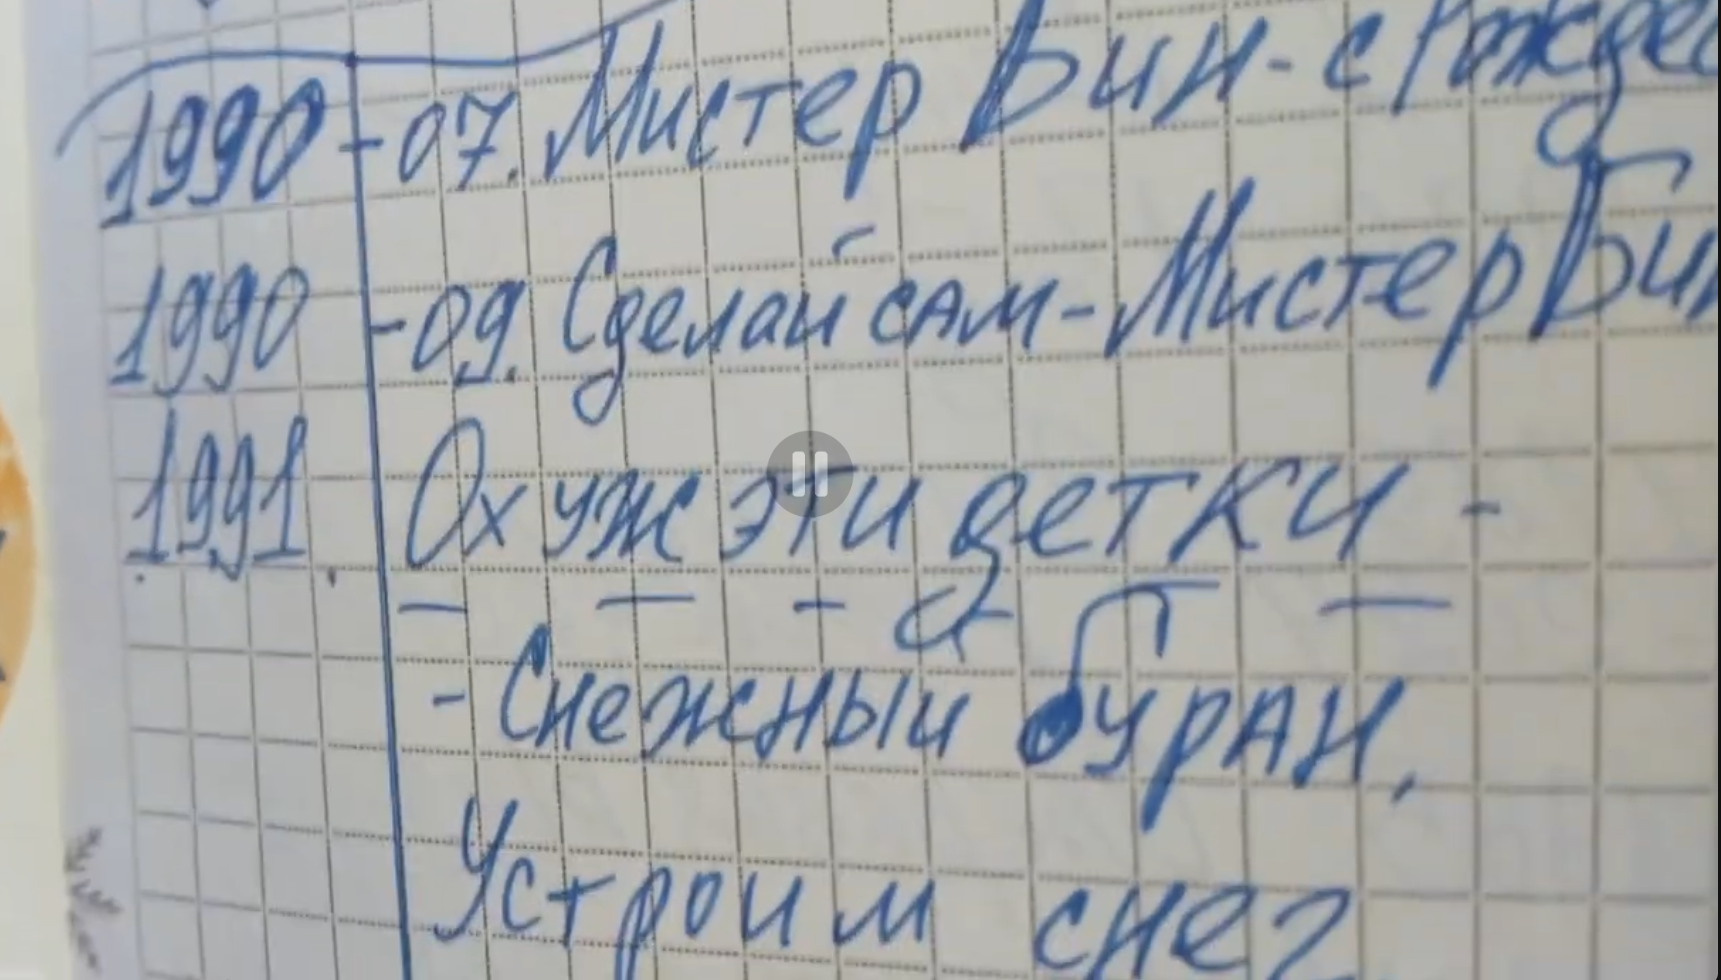 1990 - 07. Мистер Бин - с Рождес
1990 - 09. Сделай сам - Мистер Бин
1991. Ох уж эти детки -
- Снежный буран,
Устроим снег